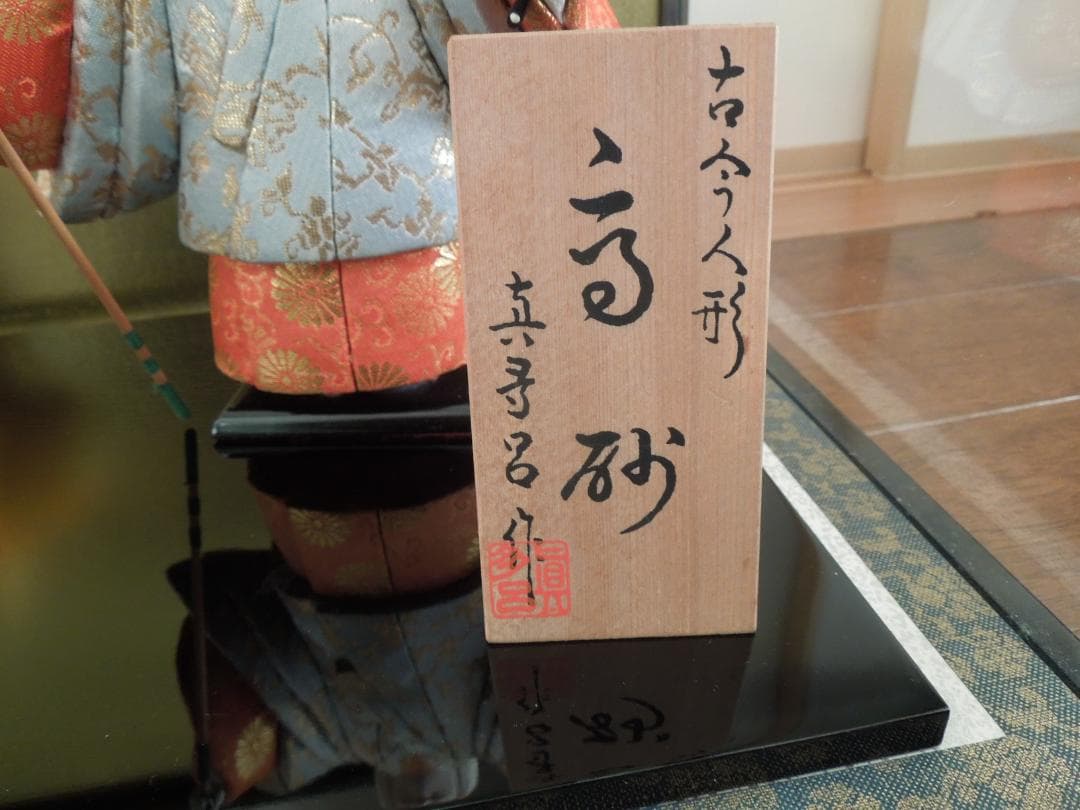 古今人形
高砂
真寿呂作